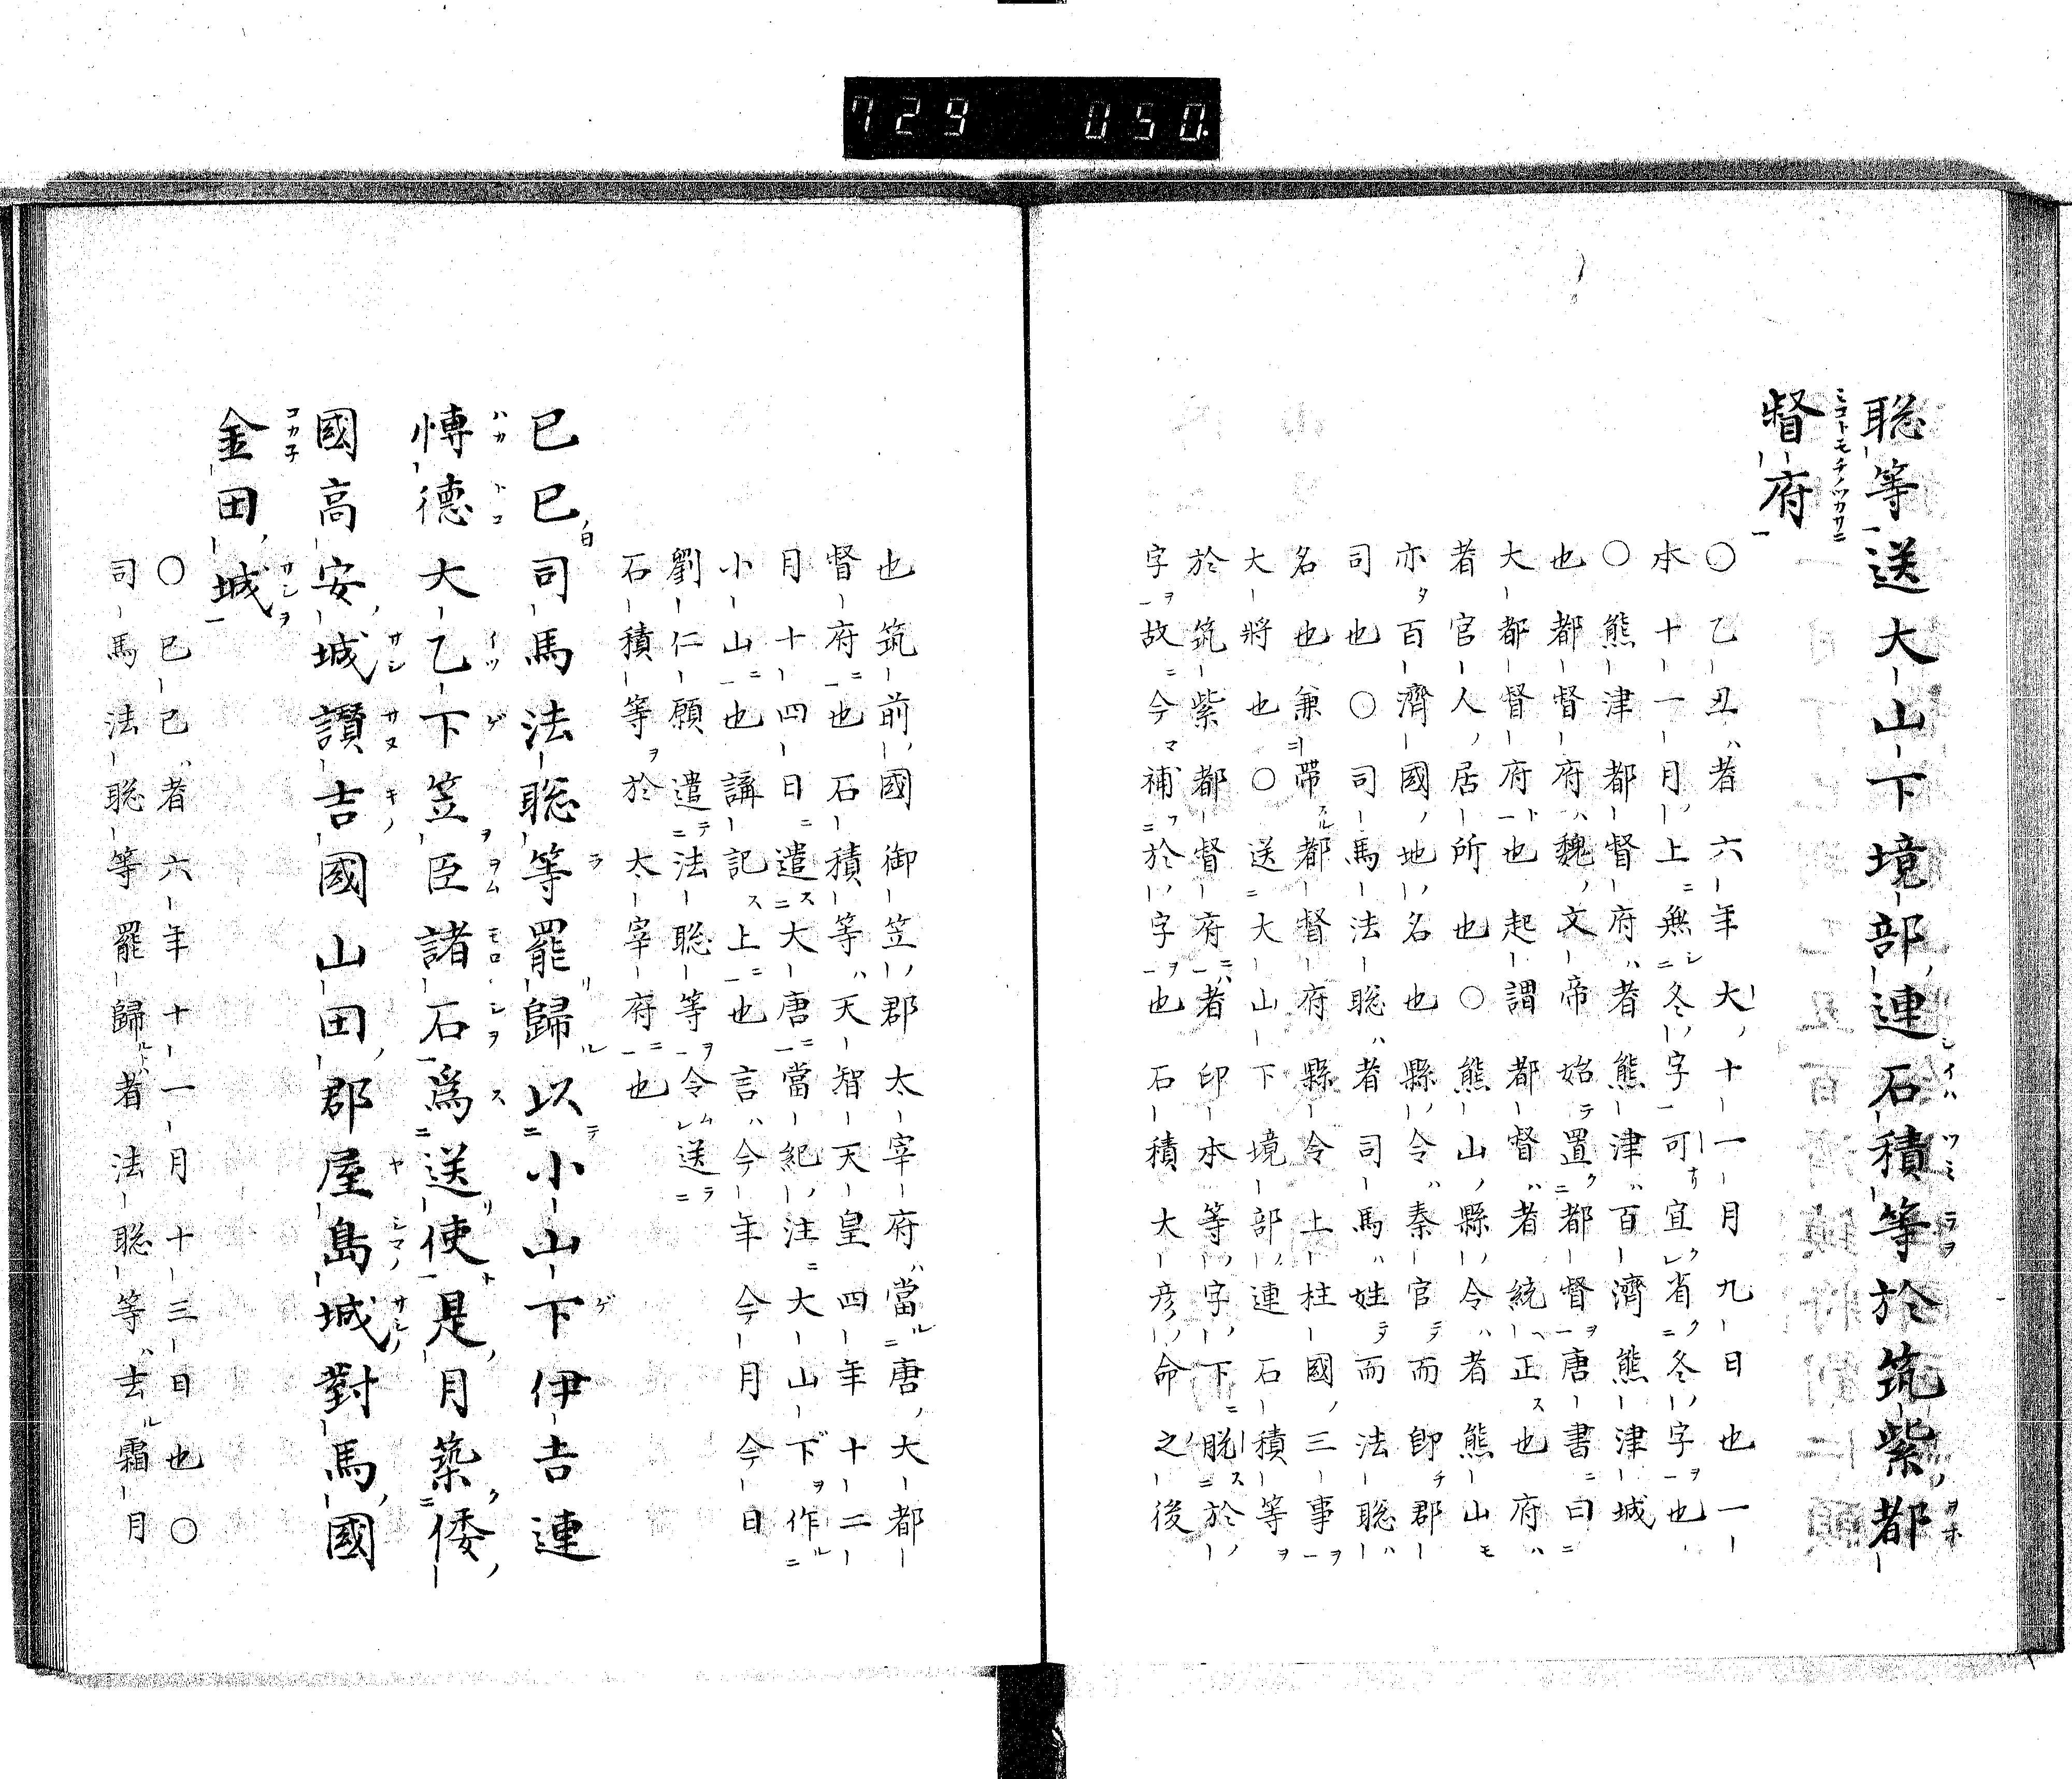 729 050.
聡等送大山下境部連石積等於筑紫都
督府
〇乙丑者六年大十一月九日也一
本十一月上無冬字可宜省冬字也
〇熊津都督府者熊津百濟熊津城
也都督府魏文帝始置都督唐書曰
大都督府也起謂都督者統正也府
者官人居所也〇熊山縣令者熊山
亦百濟國地名也縣令秦官而卽郡
司也〇司馬法聡者司馬姓而法聡
名也兼帶都督府縣令上柱國三事
大將也〇送大山下境部連石積等
於筑紫都督府者印本等字下脱於
字故今補於字也石積大彦命之後
也筑前國御笠郡太宰府當唐大都
督府也石積等天智天皇四年十二
月十四日遣大唐當紀注大山下作
小山也講記上也言今年今月今日
劉仁願遣法聡等令送
石積等於太宰府也
已巳司馬法聡等罷歸以小山下伊吉連
博德大乙下笠臣諸石爲送使是月築倭
國高安城讚吉國山田郡屋島城對馬國
金田城
〇已巳者六年十一月十三日也〇
司馬法聡等罷歸者法聡等去霜月